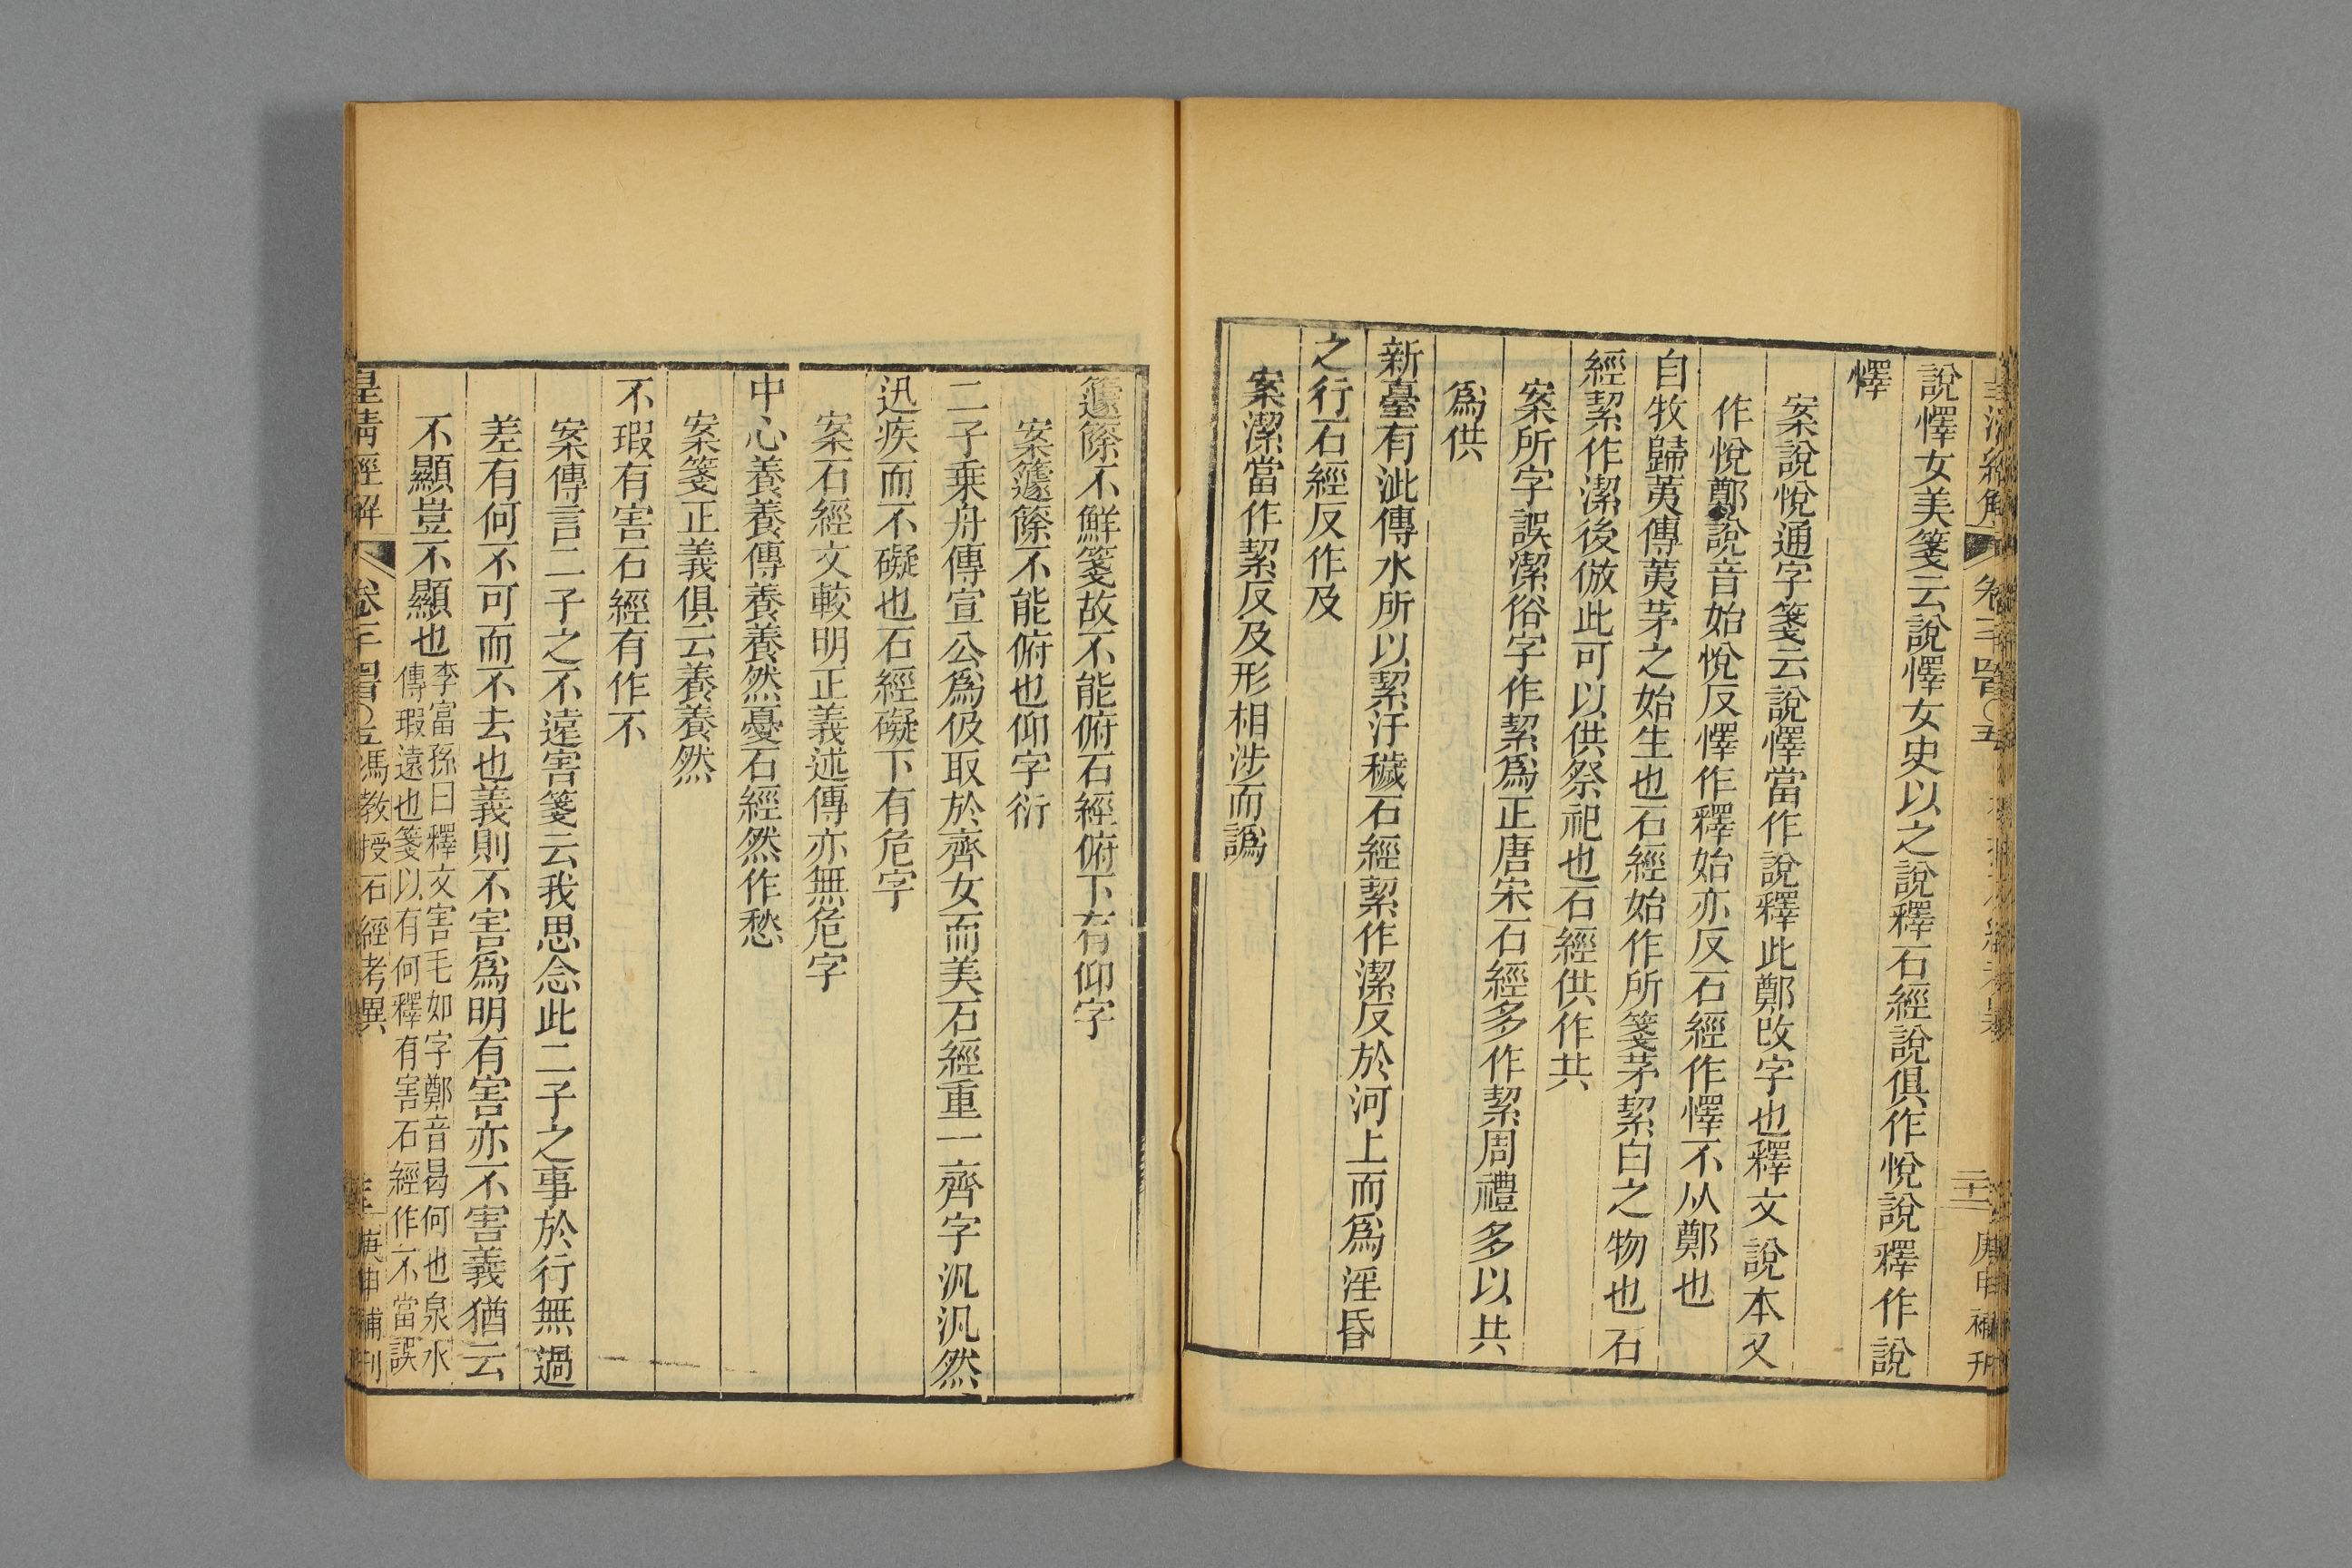 說懌女美箋云說懌女史以之說釋石經說俱作悅說釋作說
懌
案說悅通字箋云說懌當作說釋此鄭改字也釋文說本又
作悅鄭說音始悅反懌作釋始亦反石經作懌不从鄭也
自牧歸荑傳荑茅之始生也石經始作所箋茅絜白之物也石
經絜作潔後倣此可以供祭祀也石經供作共
案所字誤潔俗字作絜爲正唐宋石經多作絜周禮多以共
爲供
新臺有泚傳水所以絜汙穢石經絜作潔反於河上而爲淫昏
之行石經反作及
案潔當作絜反及形相涉而譌
籧篨不鮮箋故不能俯石經俯下有仰字
案籧篨不能俯也仰字衍
二子乗舟傳宣公爲伋取於齊女而美石經重一齊字汎汎然
迅疾而不礙也石經礙下有危字
案石經文較明正義述傳亦無危字
中心養養傳養養然憂石經然作愁
案箋正義俱云養養然
不瑕有害石經有作不
案傳言二子之不遠害箋云我思念此二子之事於行無過
差有何不可而不去也義則不害爲明有害亦不害義猶云
不顯豈不顯也李富孫曰釋文害毛如字鄭音曷何也泉水
傳瑕遠也箋以有何釋有害石經作不當誤
皇清經解 卷 馮教授石經考異 庚申補刊